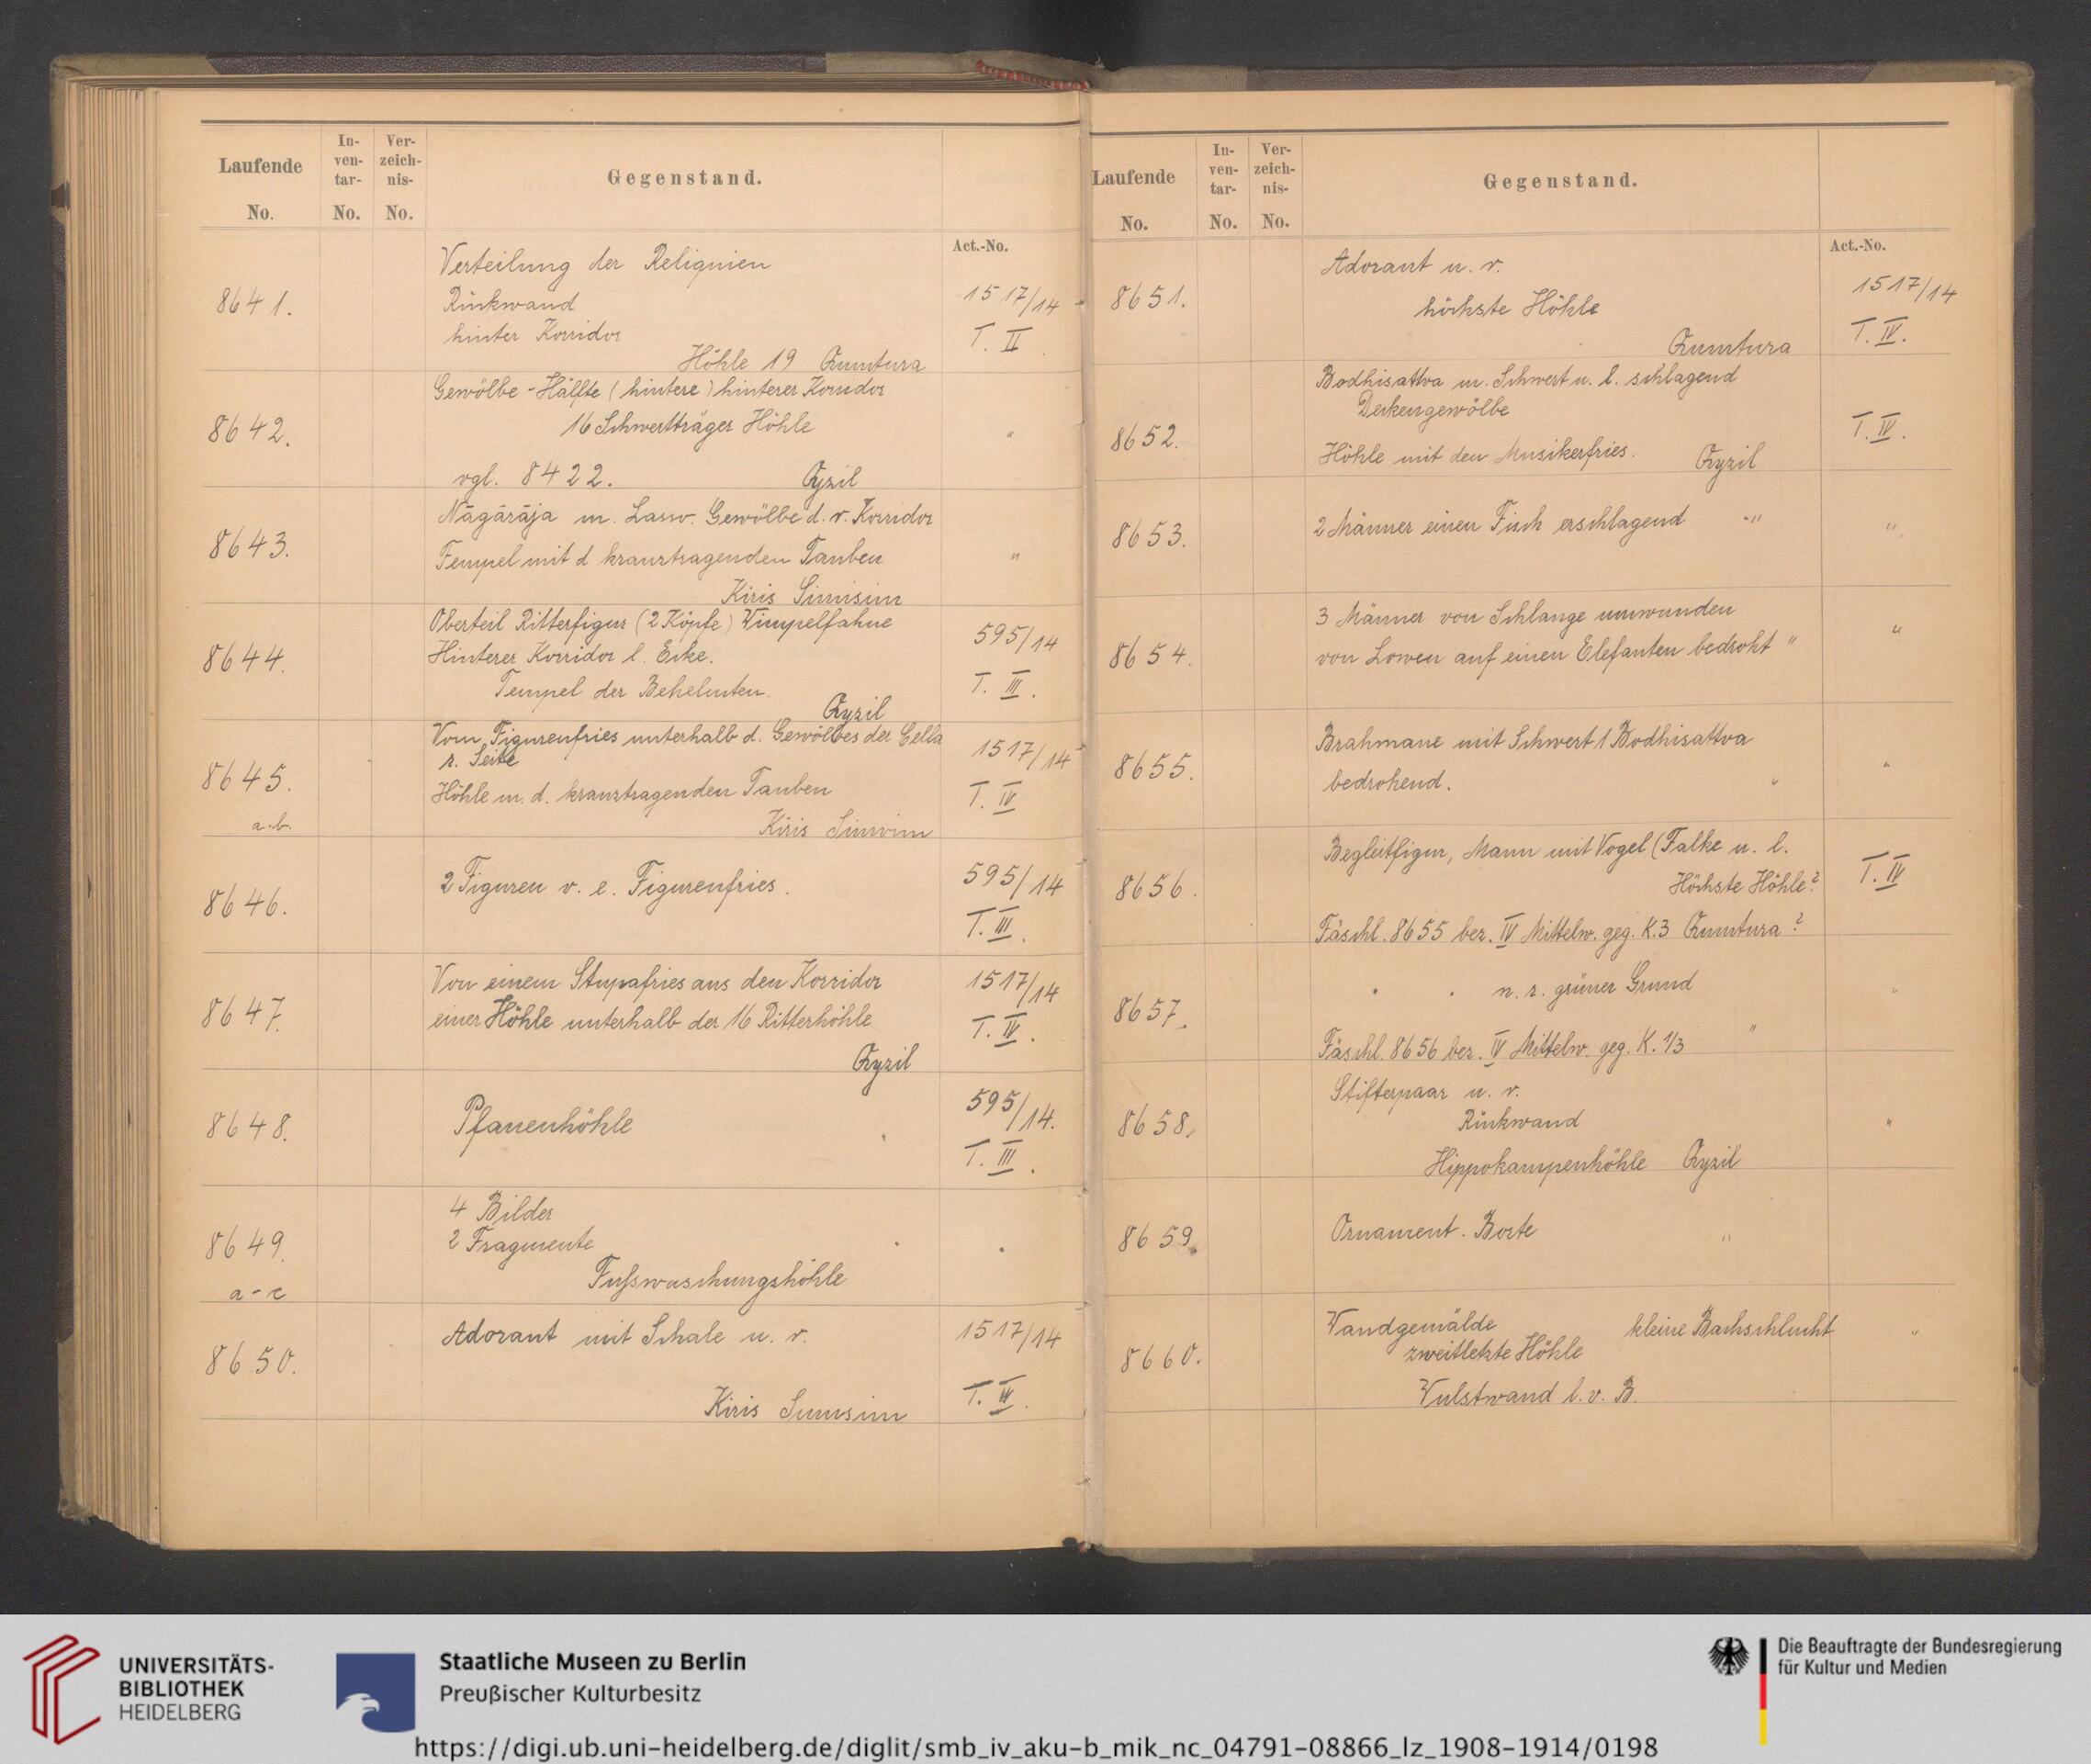 Laufende No.
In-ven-tar-No.
Ver-zeich-nis-No.
Gegenstand.
Act.-No.
8641.
Verteilung der Reliquien
Rückwand
hinter Korridor
Höhle 19 Qumtura
1517/14
T. II
8642.
Gewölbe-Hälfte (hintere) hinterer Korridor
16 Schwertträger Höhle
vgl. 8422. Qyzil
"
8643.
Nāgārāja m. Lasso. Gewölbe d. v. Korridor
Tempel mit d kranztragenden Tauben
Kiris Simisim
"
8644.
Oberteil Ritterfigur (2 Köpfe) Wimpelfahne
Hinterer Korridor l. Ecke.
Tempel der Behelmten.
Qyzil
595/14
T. III.
8645.
a.b.
Vom Figurenfries unterhalb d. Gewölbes der Cella
r. Seite
Höhle m. d. kranztragenden Tauben
Kiris Simsim
1517/14
T. IV
8646.
2 Figuren v. e. Figurenfries.
595/14
T. III.
8647.
Von einem Stupafries aus den Korridor
einer Höhle unterhalb der 16 Ritterhöhle
Qyzil
1517/14
T. IV.
8648.
Pfauenhöhle "
595/14.
T. III.
8649.
a-c
4 Bilder
2 Fragmente "
Fußwaschungshöhle
"
8650.
Adorant mit Schale n. r.
Kiris Simisim
1517/14
T. IV.
Laufende No.
In-ven-tar-No.
Ver-zeich-nis-No.
Gegenstand.
Act.-No.
8651.
Adorant n. r.
höchste Höhle
Qumtura
1517/14
T. IV.
8652.
Bodhisattva m. Schwert n. l. schlagend
Deckengewölbe
Höhle mit den Musikerfries. Qyzil
T. IV.
8653.
2 Männer einen Fisch erschlagend "
"
8654.
3 Männer von Schlange umwunden
von Lowen auf einen Elefanten bedroht "
"
8655.
Brahmane mit Schwert 1 Bodhisattva
bedrohend. "
"
8656.
Begleitfigur, Mann mit Vogel (Falke n. l.
Höchste Höhle?
Fäschl. 8655 bez. IV Mittelw. geg. K.3 Qumtura?
T. IV
8657.
" " n. r. grüner Grund
Fäschl. 8656 bez. IV Mittelw. geg. K. 1/3 "
"
8658.
Stifterpaar n. r.
Rückwand
Hippokampenhöhle Qyzil
"
8659.
Ornament. Borte "
8660.
Wandgemälde kleine Bachschlucht
zweitletzte Höhle
Vulstwand l. v. B.
"
UNIVERSITÄTS-
BIBLIOTHEK
HEIDELBERG
Staatliche Museen zu Berlin
Preußischer Kulturbesitz
Die Beauftragte der Bundesregierung
für Kultur und Medien
https://digi.ub.uni-heidelberg.de/diglit/smb_iv_aku-b_mik_nc_04791-08866_lz_1908-1914/0198